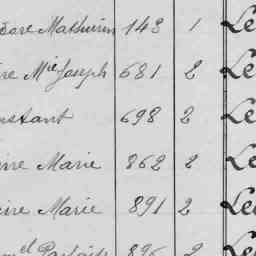 Mathurin 143 1 Le
re Mie Joseph 681 2 Le
nstant 698 2 Le
ine Marie 862 2 Le
eire Marie 891 2 Le
896 2 Le